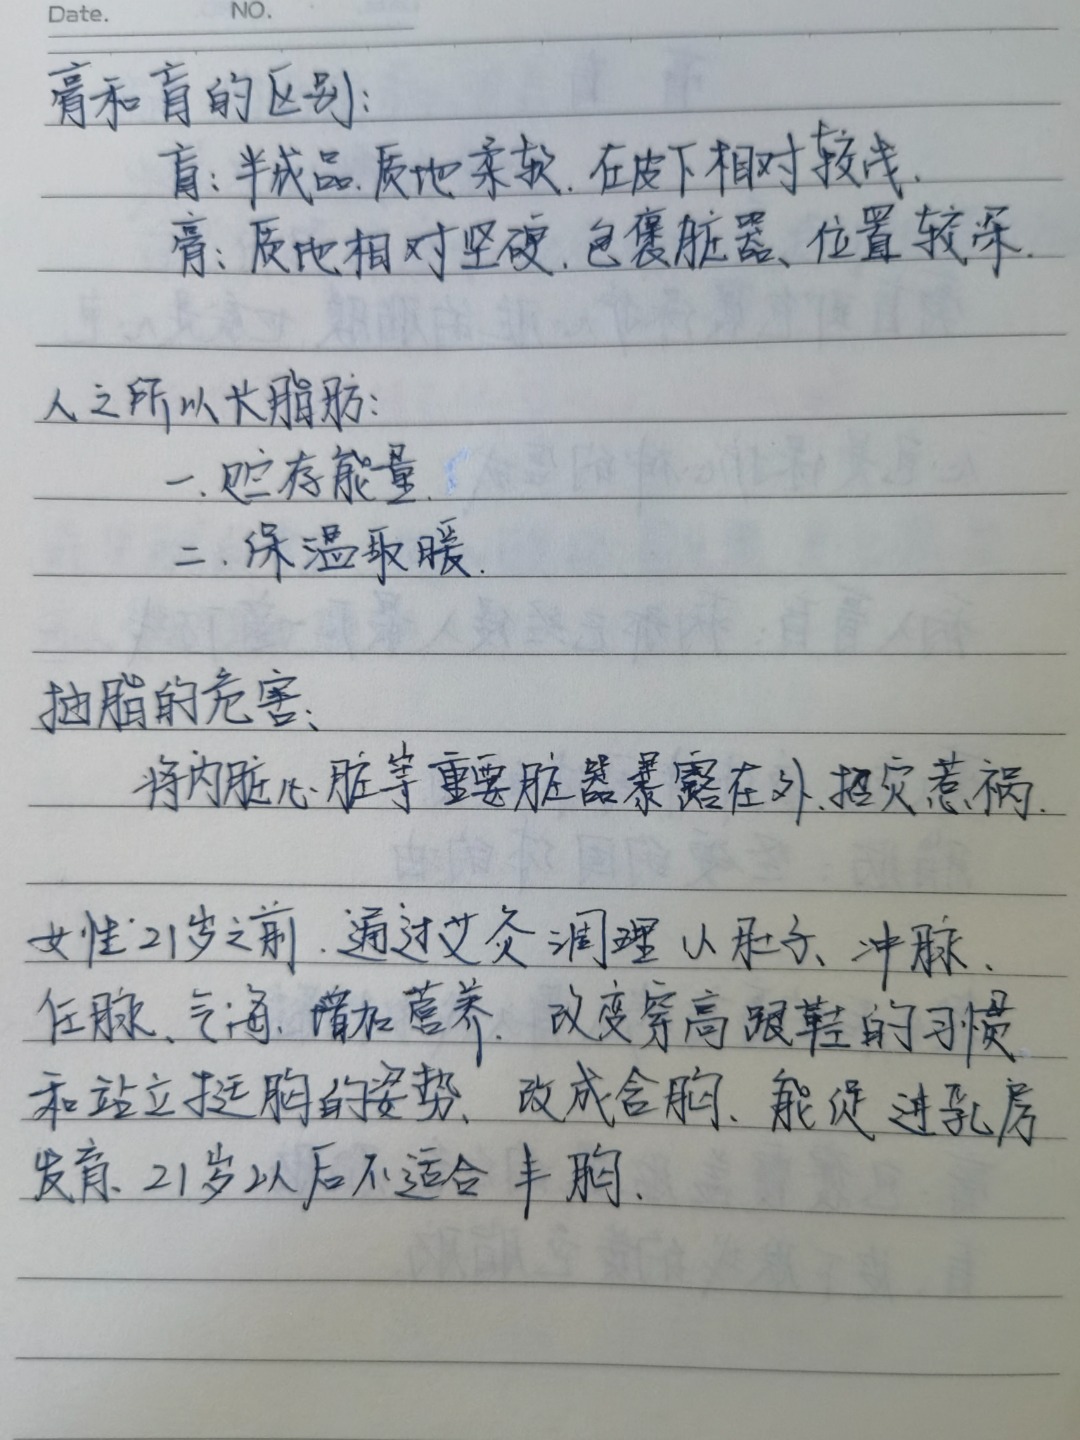 Date. NO.
膏和肓的区别:
肓:半成品.质地柔软.在皮下相对较浅.
膏:质地相对坚硬.包裹脏器、位置较深.
人之所以长脂肪:
一.贮存能量.
二.保温取暖.
抽脂的危害、
将内脏心脏等重要脏器暴露在外.招灾惹祸.
女性21岁之前.通过艾灸调理以肚子、冲脉、
任脉、气海.增加营养.改变穿高跟鞋的习惯
和站立挺胸的姿势、改成含胸、能促进乳房
发育、21岁以后不适合丰胸.